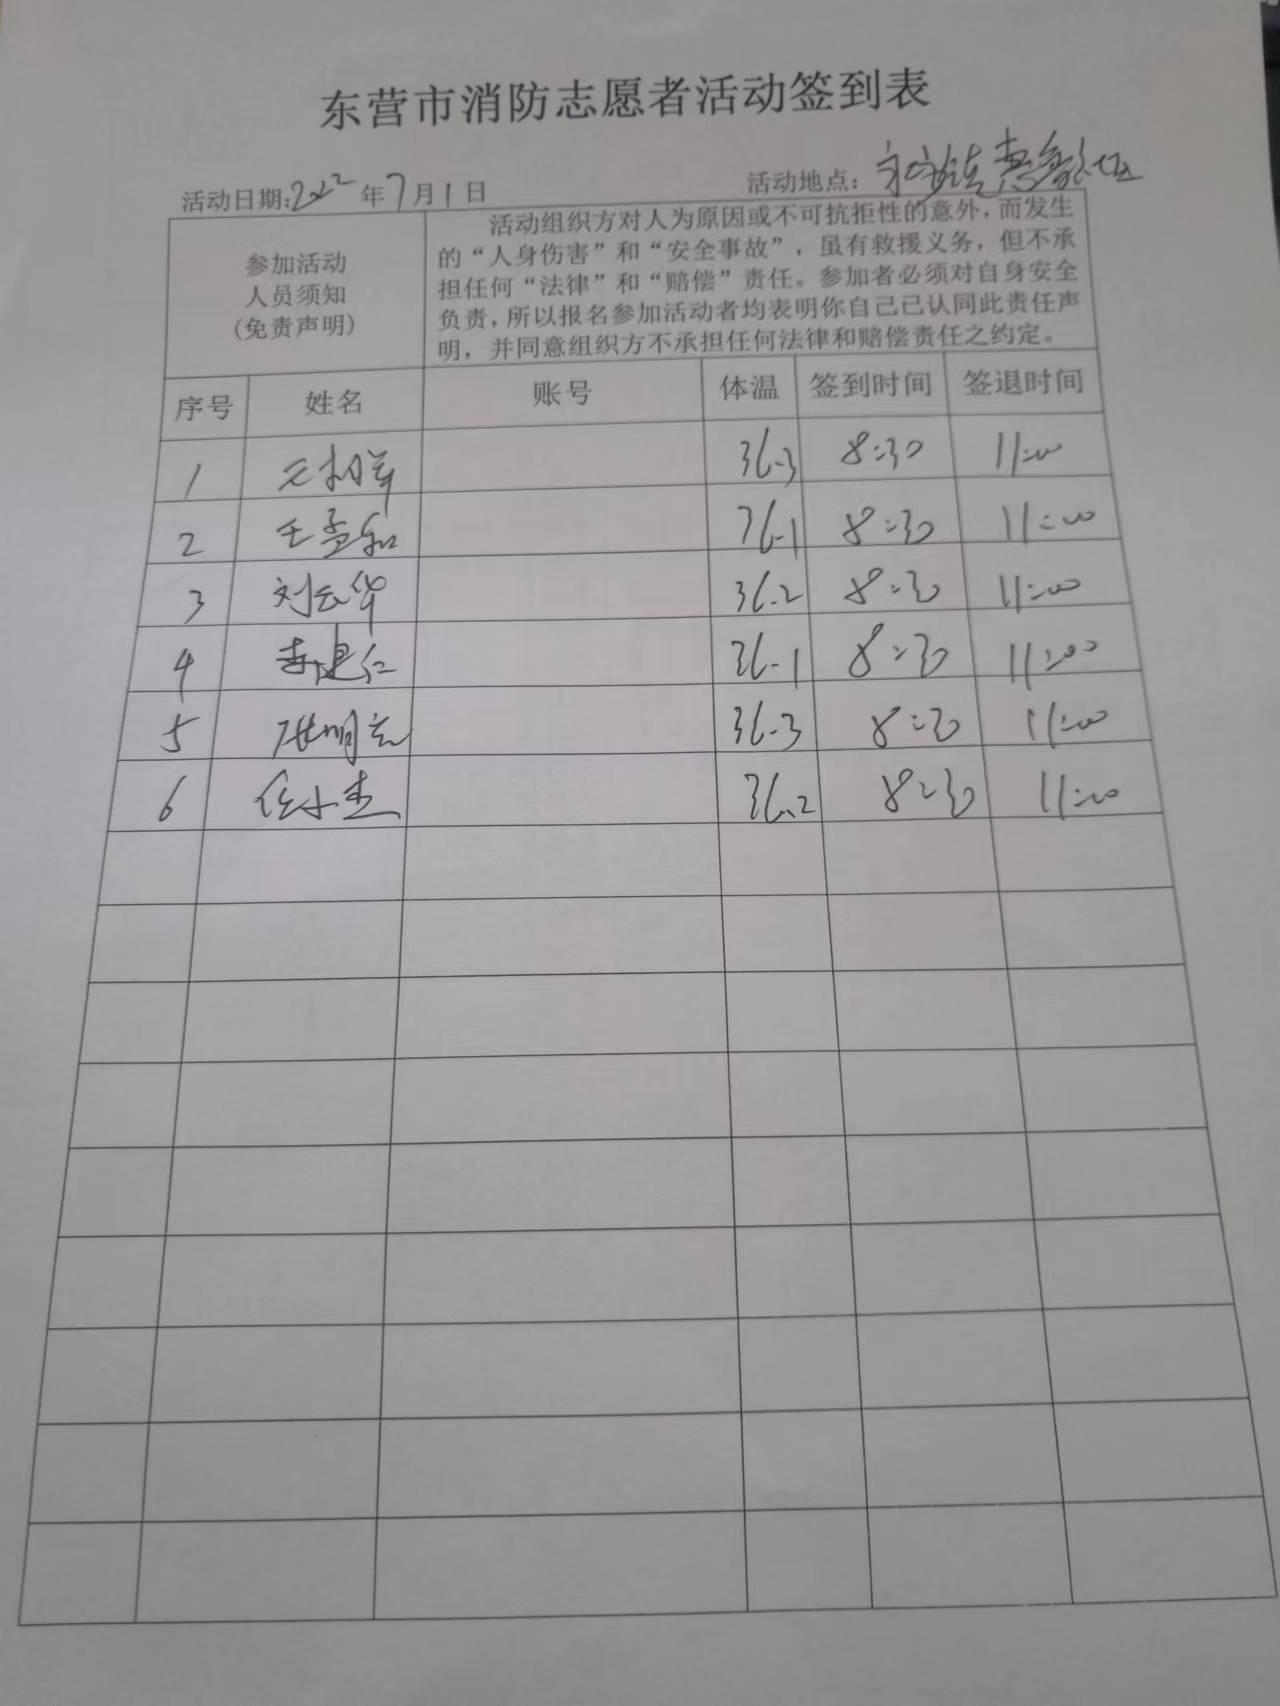 东营市消防志愿者活动签到表
活动日期:2022年7月1日 活动地点:
参加活动
人员须知
(免责声明)
活动组织方对人为原因或不可抗拒性的意外,而发生
的“人身伤害”和“安全事故”,虽有救援义务,但不承
担任何“法律”和“赔偿”责任。参加者必须对自身安全
负责,所以报名参加活动者均表明你自己已认同此责任声
明,并同意组织方不承担任何法律和赔偿责任之约定。
序号 姓名 账号 体温 签到时间 签退时间
1 36.3 8:30 11:00
2 王孟和 36.1 8:30 11:00
3 刘云华 36.2 8:30 11:00
4 李建仁 36.1 8:30 11:00
5 张明 36.3 8:30 11:00
6 任小杰 36.2 8:30 11:00